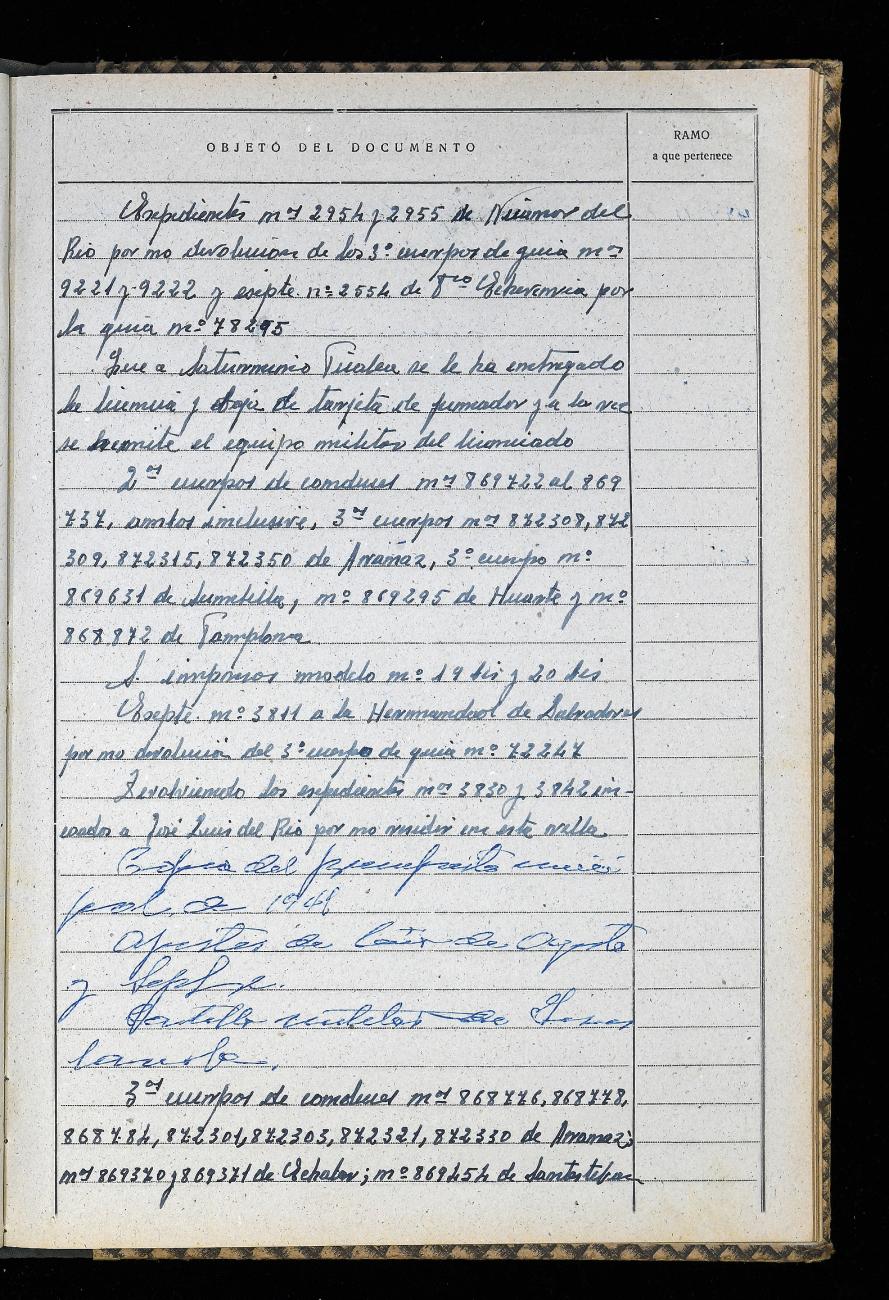 OBJETO DEL DOCUMENTO
RAMO
a que pertenece
Expedientes nos 2954 y 2955 de Nicanor del
Rio por no devolucion de los 3os cuerpos de guia nos
9221 y 9222 y expte. nº 2554 de Fco Echeverria por
la guia nº 78295
Que a Saturnino se le ha entregado
la licencia y baja de tarjeta de fumador y a la vez
se remite el equipo militar del licenciado
2os cuerpos de conduces nos 869722 al 869
737, ambos inclusive, 3os cuerpos nos 872308, 872
309, 872315, 872350 de Aranaz, 3º cuerpo nº
869631 de Sumbilla, nº 869295 de Huarte y nº
868.872 de Pamplona
S. impresos modelo nº 19 bis y 20 bis
Expte. nº 3811 a la Hermandad de Labradores
por no devolución del 3º cuerpo de guia nº 72247
Devolviendo los expedientes nos 3830 y 3842 in-
coados a José Luis del Rio por no residir en esta villa
Copia del presupuesto munici
pal de
de de Agosto
y Sepbre.
Cartilla de
3os cuerpos de conduces nos 868776, 868778,
868784, 872301, 872303, 872321, 872330 de Aranaz;
nos 869370 y 869371 de Echalar; nº 869454 de Santesteban